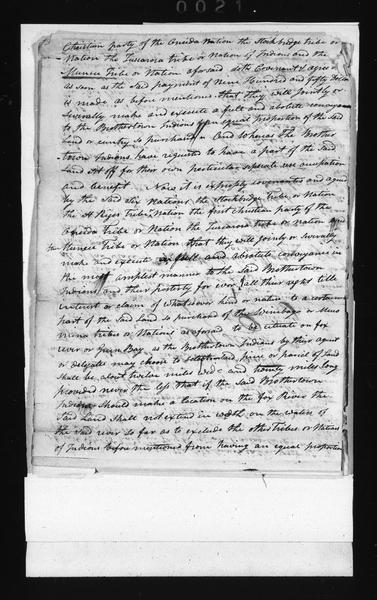 Christian party of the Oneida Nation the Stockbridge tribe or
Nation the Tuscarora tribe or Nation of Indians and the
Muncie Tribe or Nation aforsaid doth Covenant & agree
as soon as the said payment of Nine Hundred and fifty Dollars
is made as before mentioned that they will jointly or
severally make and execute a full and absolute conveyance
to the Mothertown Indians of an equal proportion of the said
Land or country so purchased. And whereas the Mother
town Indians have requested to have a part of the said
Land set off for their own particular seperate use occupation
and benefit Now it is expressly covenanted and agreed
by the said Nations, the Stockbridge tribe or Nation
the St Regis tribe or Nation the first christian party of the
Oneida Tribe or Nation the Tuscarora tribe or nation
the Muncie Tribe or Nation that they will jointly or severally
make and execute a full and absolute conveyance in
the most amplest manner to the said Mothertown
Indians and their posterity for ever all their right title
interest or claim of whatsoever kind or nature to a certain
part of the said land so purchased of the Winebago or Meno
minie tribes or Nations aforesaid to be situate on fox
river or Green Bay as the Mothertown Indians by their agent
or delegates may choose to select said piece or parcel of land
shall be about twelve miles wide and twenty miles long
provided never the less that if the said Mothertown
Indians should make a location on the Fox River the
said Land shall not extend in width on the waters of
the said river so far as to exclude the other tribes or Nations
of Indians before mentioned from having an equal proportion